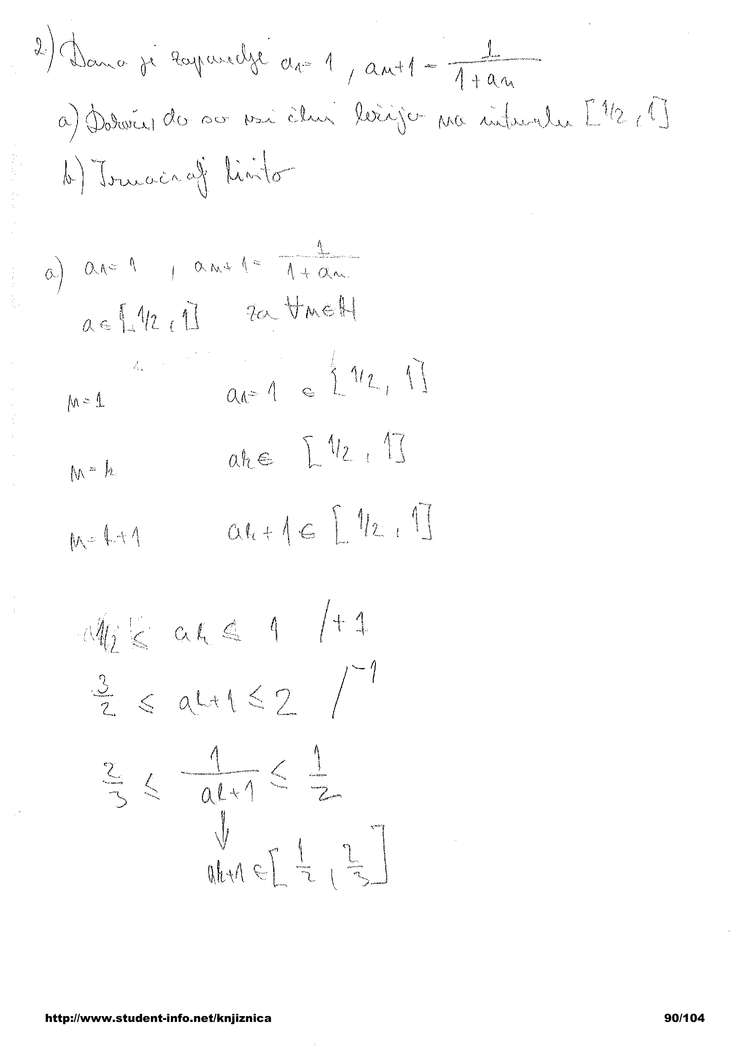 2) Dano je zaporedje a1 = 1 , an+1 = 1/(1+an)
a) Dokaži, da so vsi členi ležijo na intervalu [1/2, 1]
b) Izračunaj limito
a) a1 = 1 , an+1 = 1/(1+an)
a ∈ [1/2, 1] za ∀n∈N
n=1 a1 = 1 ∈ [1/2, 1]
n=k ak ∈ [1/2, 1]
n=k+1 ak+1 ∈ [1/2, 1]
1/2 ≤ ak ≤ 1 /+1
3/2 ≤ ak+1 ≤ 2 /⁻¹
2/3 ≤ 1/(ak+1) ≤ 1/2
↓
ak+1 ∈ [1/2, 2/3]
http://www.student-info.net/knjiznica 90/104